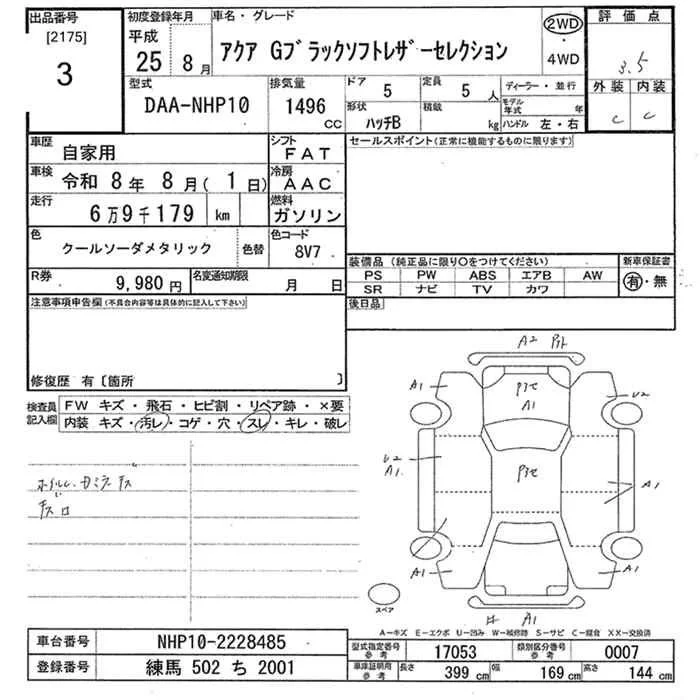 出品番号 初度登録年月 車名・グレード 2WD 評価点
[2175] 平成
3 25 8月 アクア Gブラックソフトレザーセレクション ・ 4WD 3.5
型式 排気量 ドア 定員 ディーラー・並行 外装 内装
DAA-NHP10 1496 CC 5 5人 モデル年式 年 C C
形状 積載
ハッチB kg ハンドル 左・右
車歴 自家用 シフト FAT セールスポイント(正常に機能するものに限ります)
車検 令和 8年 8月( 1日) 冷房 AAC
走行 6万9千179 km 燃料 ガソリン
色 クールソーダメタリック 色替 色コード 8V7
装備品(純正品に限り○をつけてください) 新車保証書
R券 9,980円 名変通知期限 月 日 PS PW ABS エアB AW 有・無
SR ナビ TV カワ
注意事項申告欄(不具合内容等は具体的に記入して下さい) 後日品
修復歴 有〔箇所 〕
検査員記入欄 FW キズ・飛石・ヒビ割・リペア跡・×要
内装 キズ・汚レ・コゲ・穴・スレ・キレ・破レ
A2
A1 A1 U2
U2
A1 A1
A1 A1
A1
スペア
A―キズ E―エクボ U―凹み W―補修跡 S―サビ C―腐食 XX―交換済
車台番号 NHP10-2228485 型式指定番号 参考 17053 類別区分番号 参考 0007
登録番号 練馬 502 ち 2001 車庫証明用 参考 長さ 399 cm 幅 169 cm 高さ 144 cm